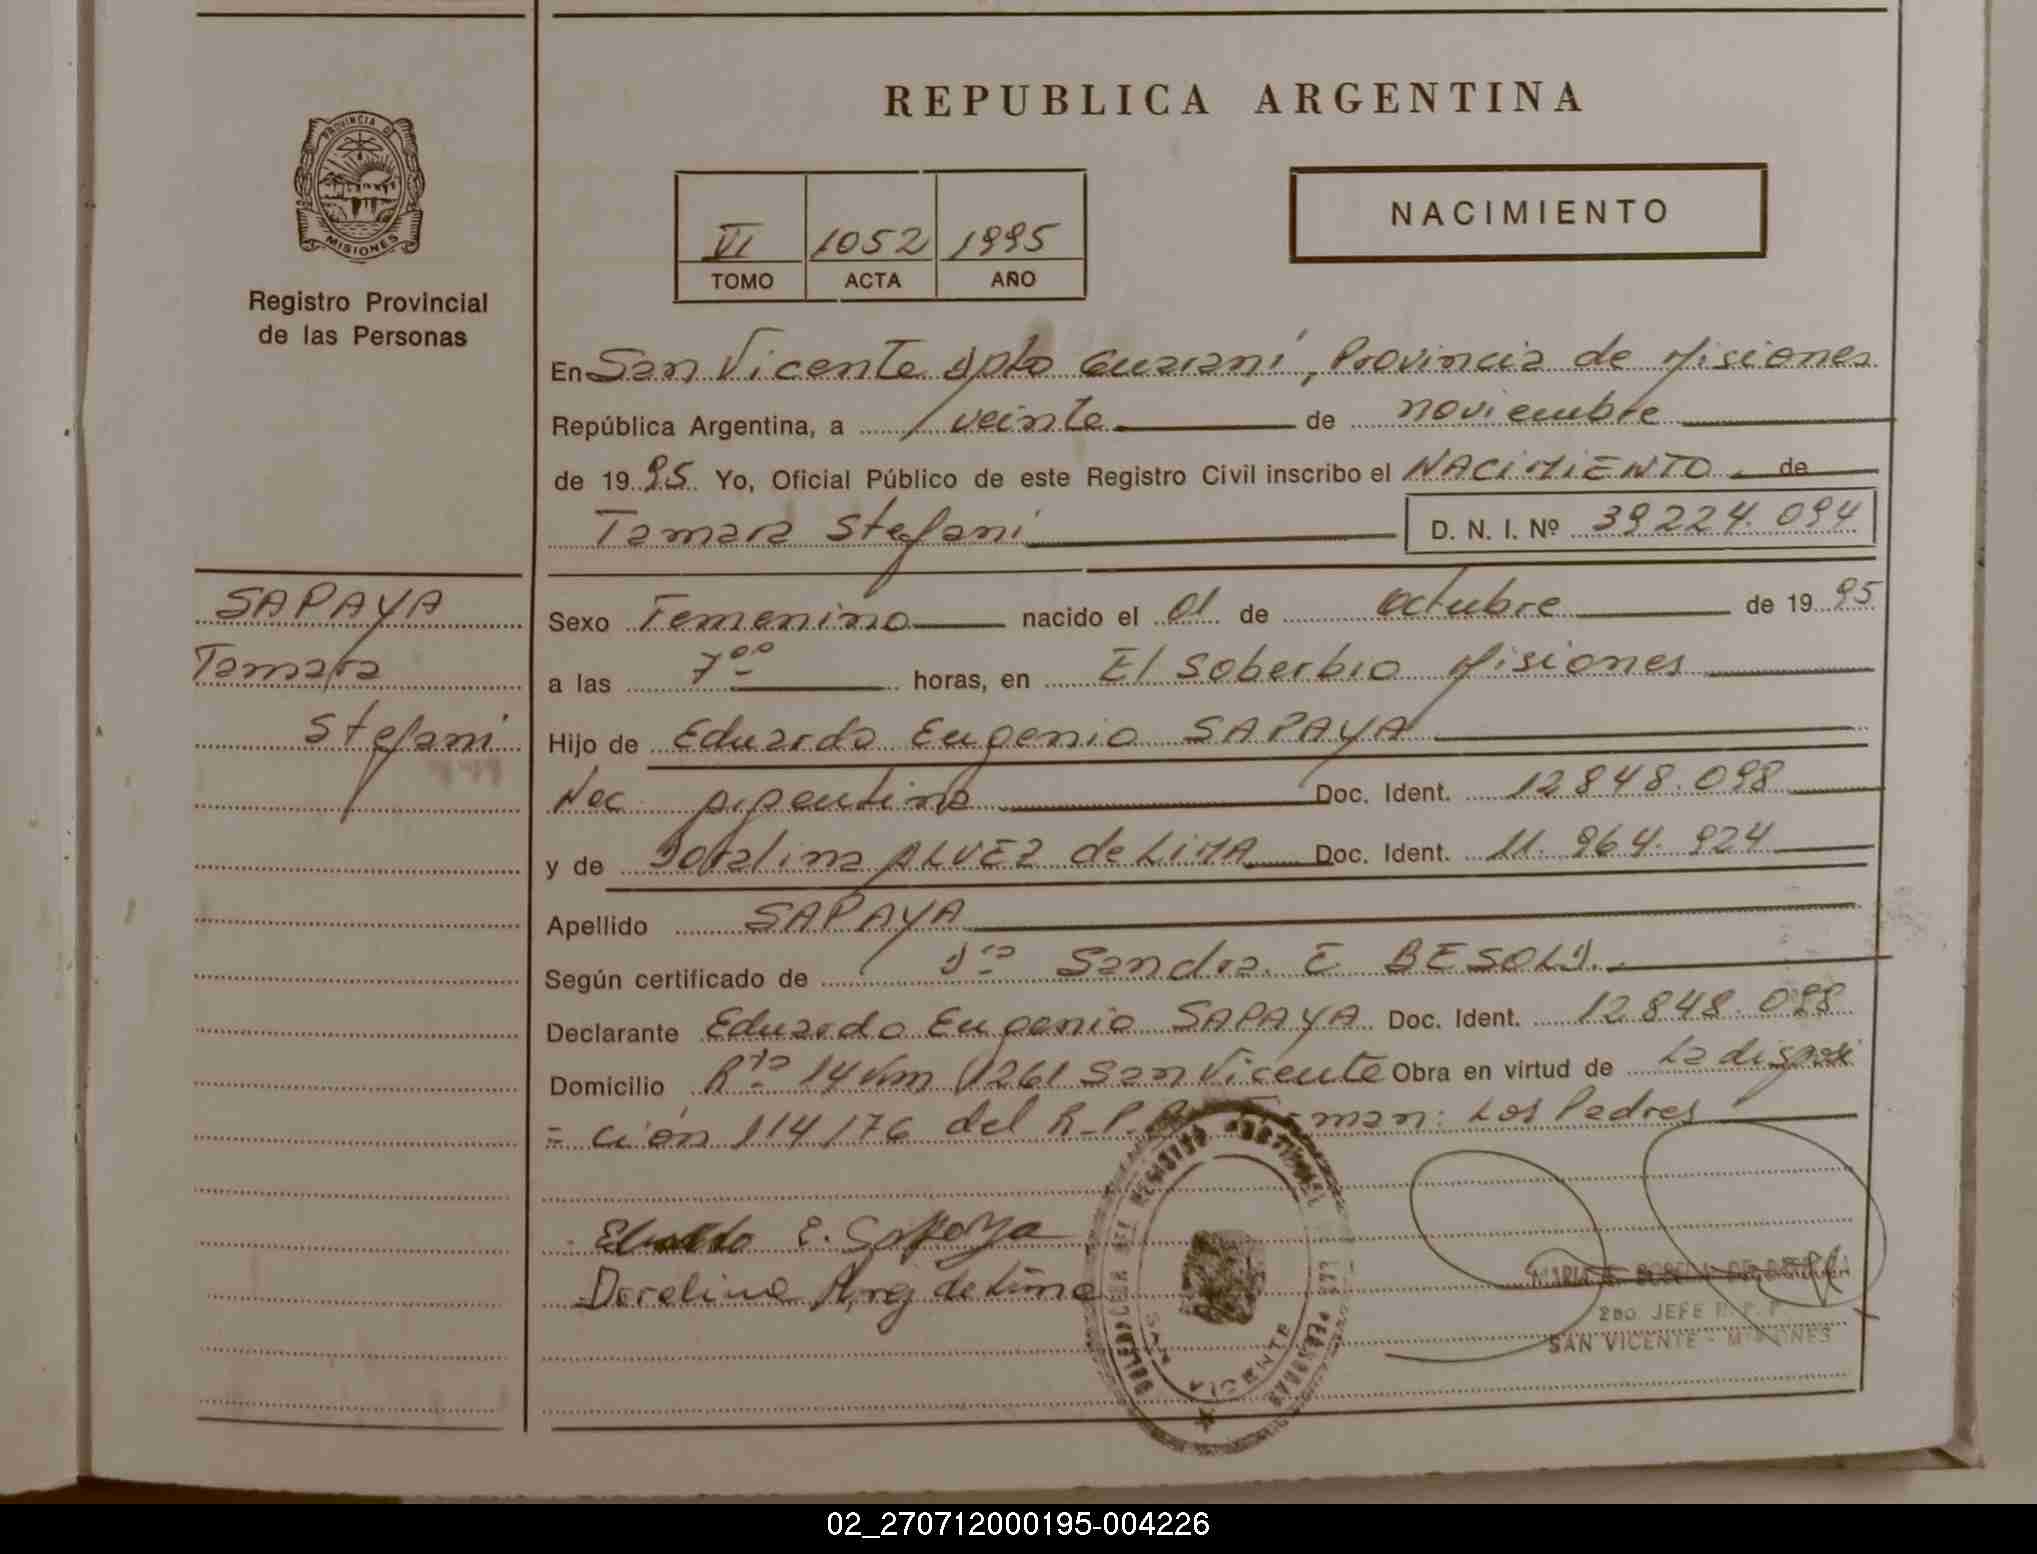 REPUBLICA ARGENTINA
PROVINCIA DE
MISIONES
Registro Provincial
de las Personas
VI 1052 1995
TOMO ACTA AÑO
NACIMIENTO
En San Vicente Dpto Guaraní, Provincia de Misiones
República Argentina, a veinte de noviembre
de 1995 Yo, Oficial Público de este Registro Civil inscribo el NACIMIENTO de
Tamara Stefani D. N. I. Nº 39224.094
SAPAYA
Tamara
Stefani
Sexo Femenino nacido el 01 de octubre de 1995
a las 7oo horas, en El Soberbio Misiones
Hijo de Eduardo Eugenio SAPAYA
Nac. argentina Doc. Ident. 12848.098
y de Doralina ALVEZ de LIMA Doc. Ident. 11.964.924
Apellido SAPAYA
Según certificado de Dra Sandra E BESOLD.
Declarante Eduardo Eugenio SAPAYA Doc. Ident. 12848.098
Domicilio Rta 14 Km 1261 San Vicente Obra en virtud de La disposi
= ción 114/76 del R.P. Firman: Los Padres
E. Sapaya
Doralina de Lima
SAN VICENTE
2DO. JEFE R. P. P
SAN VICENTE - MISIONES
02_270712000195-004226